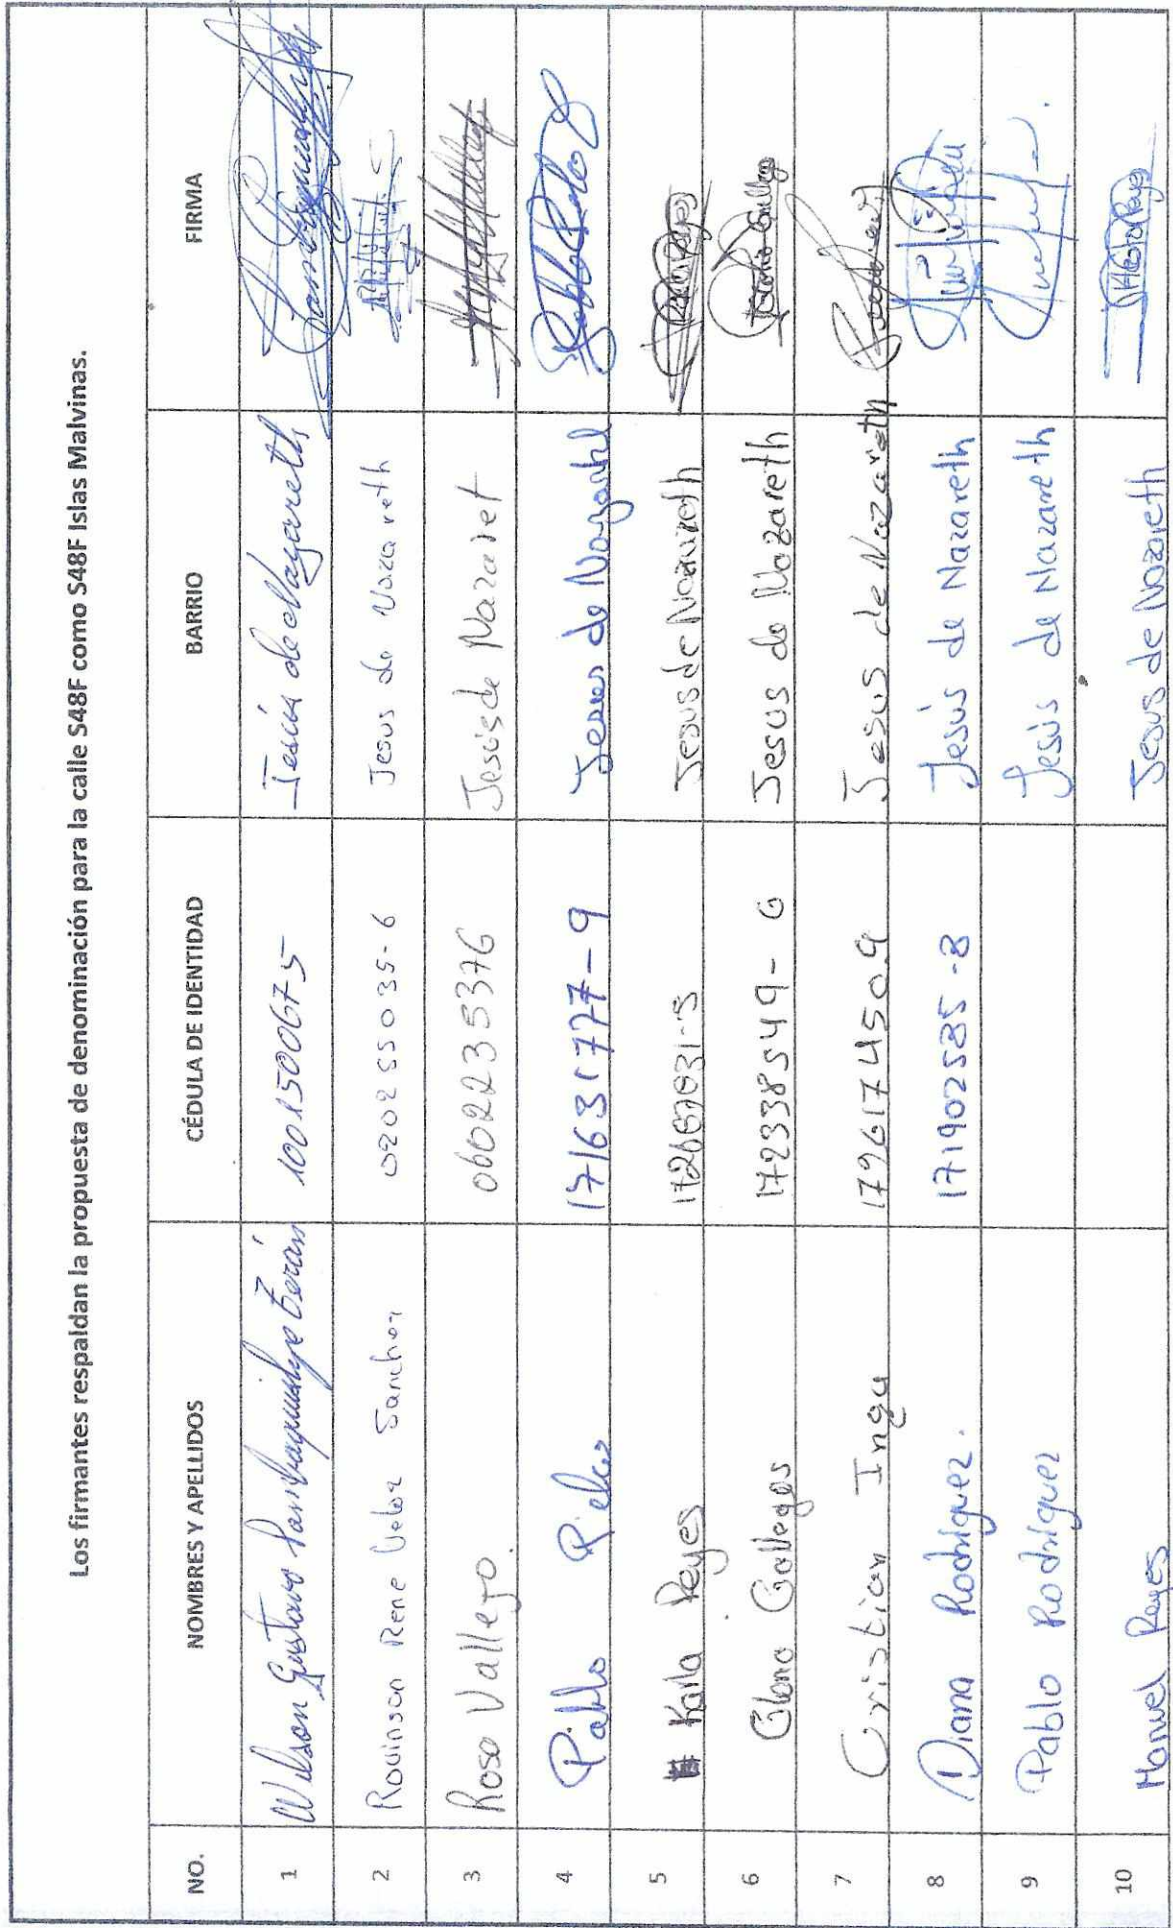 Los firmantes respaldan la propuesta de denominación para la calle S48F como S48F Islas Malvinas.
NO. NOMBRES Y APELLIDOS CÉDULA DE IDENTIDAD BARRIO FIRMA
1 Wilson Gustavo 1001500675 Jesús de Nazareth
2 Rovinson Rene Veloz Sanchez 020255035-6 Jesus de Nazareth
3 Rosa Vallejo. 0602235376 Jesús de Nazaret
4 Pablo 171631777-9 Jesus de
5 Karla Reyes Jesus de Nazareth Karla Reyes
6 Gallegos 172338549-6 Jesus de Nazareth
7 Cristian Inga Jesus de Nazareth
8 Diana Rodriguez. 171902585-8 Jesús de Nazareth
9 Pablo Rodriguez Jesús de Nazareth
10 Manuel Reyes Jesus de Nazareth